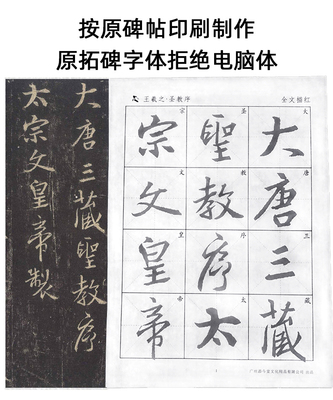 按原碑帖印刷制作
原拓碑字体拒绝电脑体
大唐三藏聖教序
太宗文皇帝製
王羲之·圣教序
全文描红
大唐三藏
聖教序太
宗文皇帝
大
唐
三
藏
圣
教
序
太
宗
文
皇
帝
1